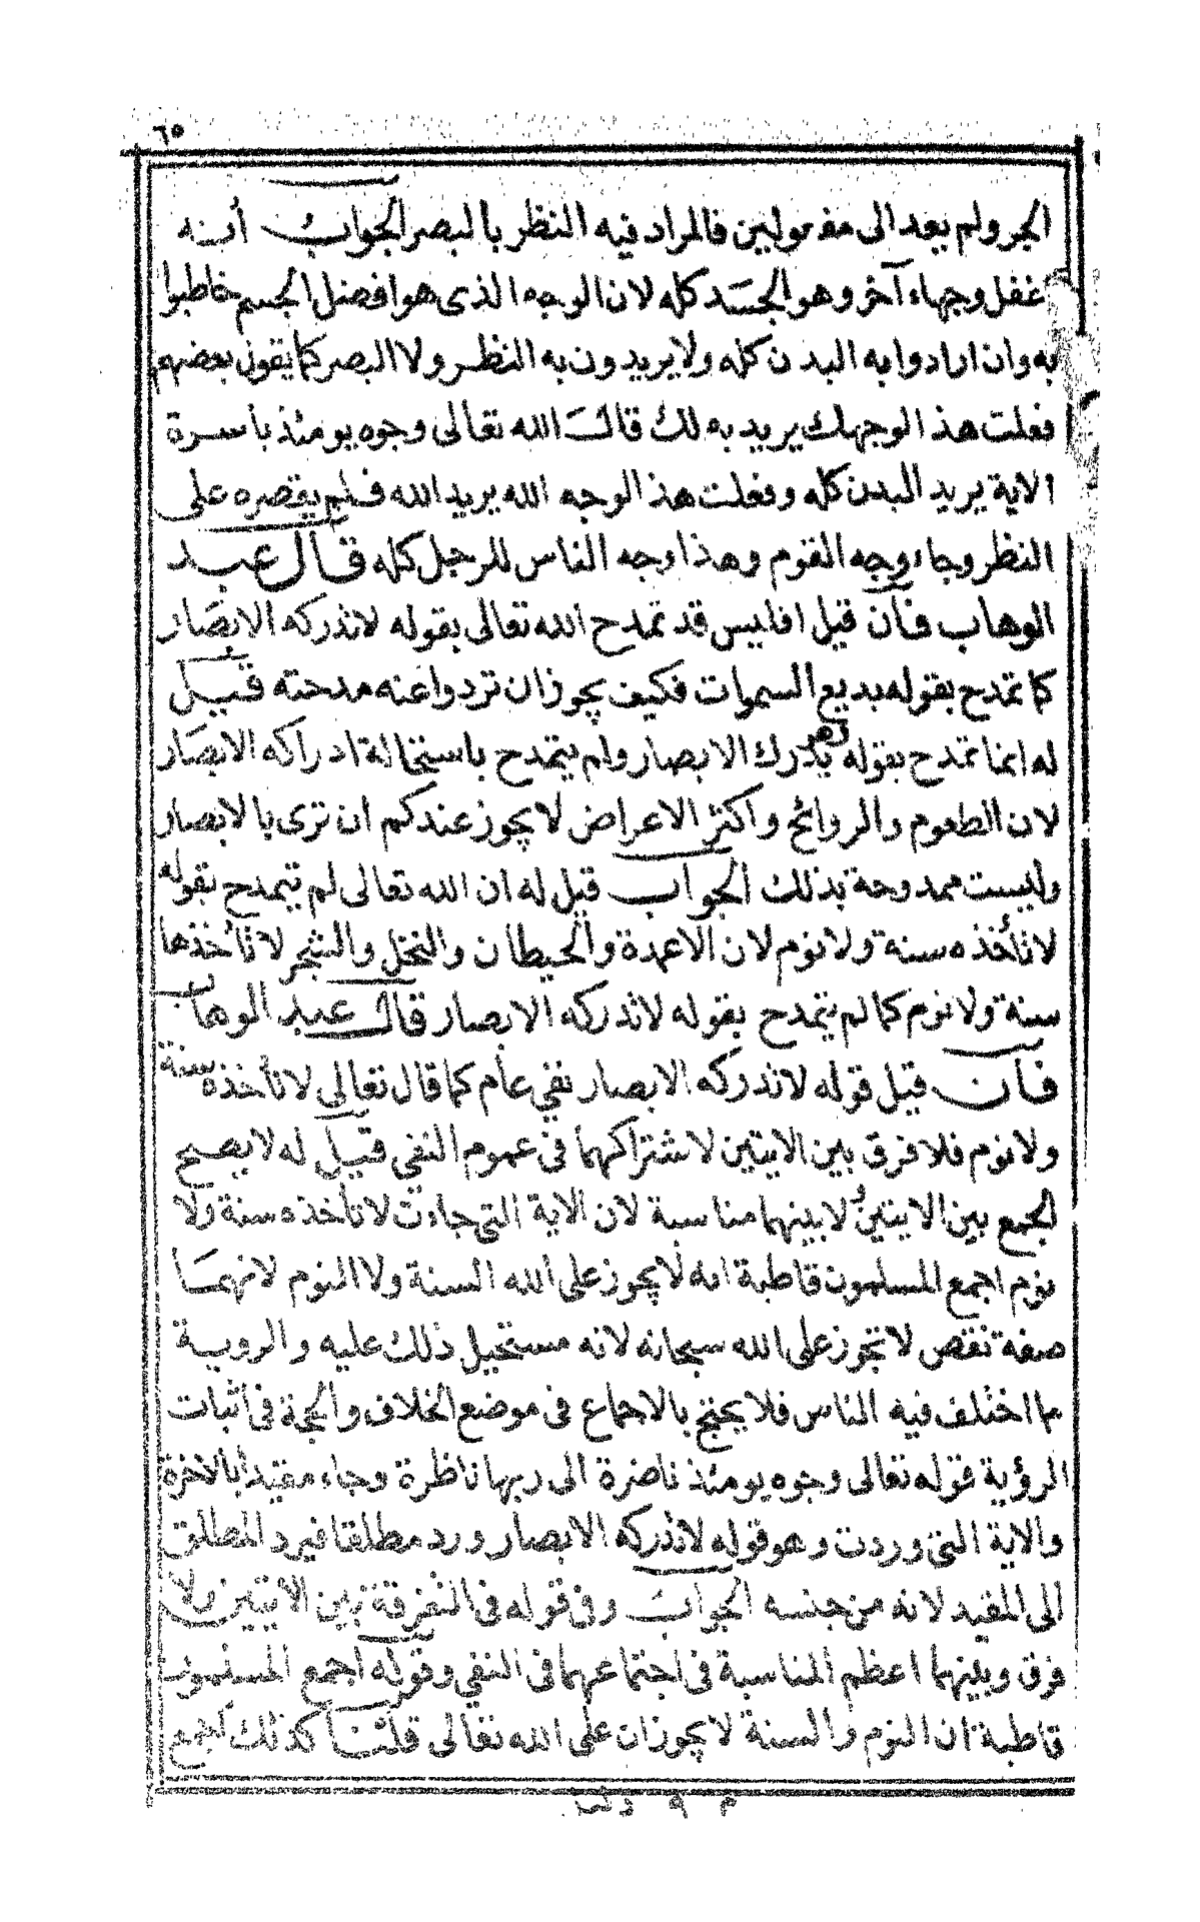 ٦٥
الجر ولم يعد الى مفعولين فالمراد فيه النظر بالبصر الجواب أنه
غفل وجهاء آخر وهو الجسد كله لان الوجه الذى هو افضل الجسم خاطبوا
به وان ارادوا به البدن كله ولا يريدون به النظر ولا البصر كما يقول بعضهم
فعلت هذا لوجهك يريد به لك قال الله تعالى وجوه يومئذ باسرة
الاية يريد البدن كله وفعلت هذا لوجه الله يريد الله فلم يقصره على
النظر وجاء وجه القوم وهذا وجه الناس للرجل كله قال عبد
الوهاب فأن قيل افليس قد تمدح الله تعالى بقوله لا تدركه الابصار
كما تمدح بقوله بديع السموات فكيف يجوز ان تردوا عنه مدحته قيل
له انما تمدح بقوله وهو يدرك الابصار ولم يتمدح باستحالة ادراكه الابصار
لان الطعوم والروائح واكثر الاعراض لا يجوز عندكم ان ترى بالابصار
وليست ممدوحة بذلك الجواب قيل له ان الله تعالى لم يتمدح بقوله
لا تأخذه سنة ولا نوم لان الاعمدة والحيطان والنخل والشجر لا تأخذها
سنة ولا نوم كما لم يتمدح بقوله لا تدركه الابصار قال عبد الوهاب
فأن قيل قوله لا تدركه الابصار نفي عام كما قال تعالى لا تأخذه سنة
ولا نوم فلا فرق بين الايتين لاشتراكهما في عموم النفي قيل له لا يصح
الجمع بين الايتين ولا بينهما مناسبة لان الاية التي جاءت لا تأخذه سنة ولا
نوم اجمع المسلمون قاطبة انه لا يجوز على الله السنة ولا النوم لانهما
صفة نقص لا تجوز على الله سبحانه لانه مستحيل ذلك عليه والروية
مما اختلف فيه الناس فلا يحتج بالاجماع في موضع الخلاف والحجة في اثبات
الرؤية قوله تعالى وجوه يومئذ ناضرة الى ربها ناظرة وجاء مقيدا بالاخرة
والاية التي وردت وهو قوله لا تدركه الابصار ورد مطلقا فيرد المطلق
الى المقيد لانه من جنسه الجواب وفي قوله في التفرقة بين الايتين ولا
فرق وبينهما اعظم المناسبة في اجتماعهما في النفي وقوله اجمع المسلمون
قاطبة ان النوم والسنة لا يجوزان على الله تعالى قلنا كذلك اجمع
م ٩